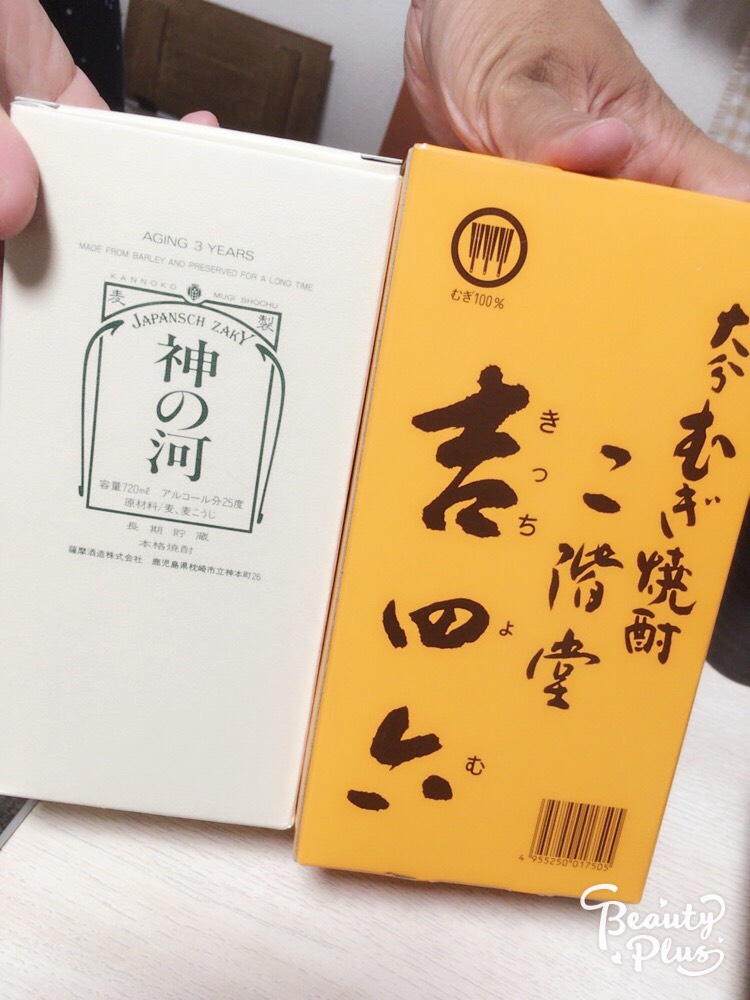 AGING 3 YEARS
MADE FROM BARLEY AND PRESERVED FOR A LONG TIME
KANNOKO MUGI SHOCHU
麦製
JAPANSCH ZAKY
神の河
容量720mℓ アルコール分25度
原材料/麦、麦こうじ
長期貯蔵
本格焼酎
薩摩酒造株式会社 鹿児島県枕崎市立神本町26
むぎ100%
大分むぎ焼酎
二階堂
吉四六
きっちょむ
4 955250 017505
Beauty
Plus